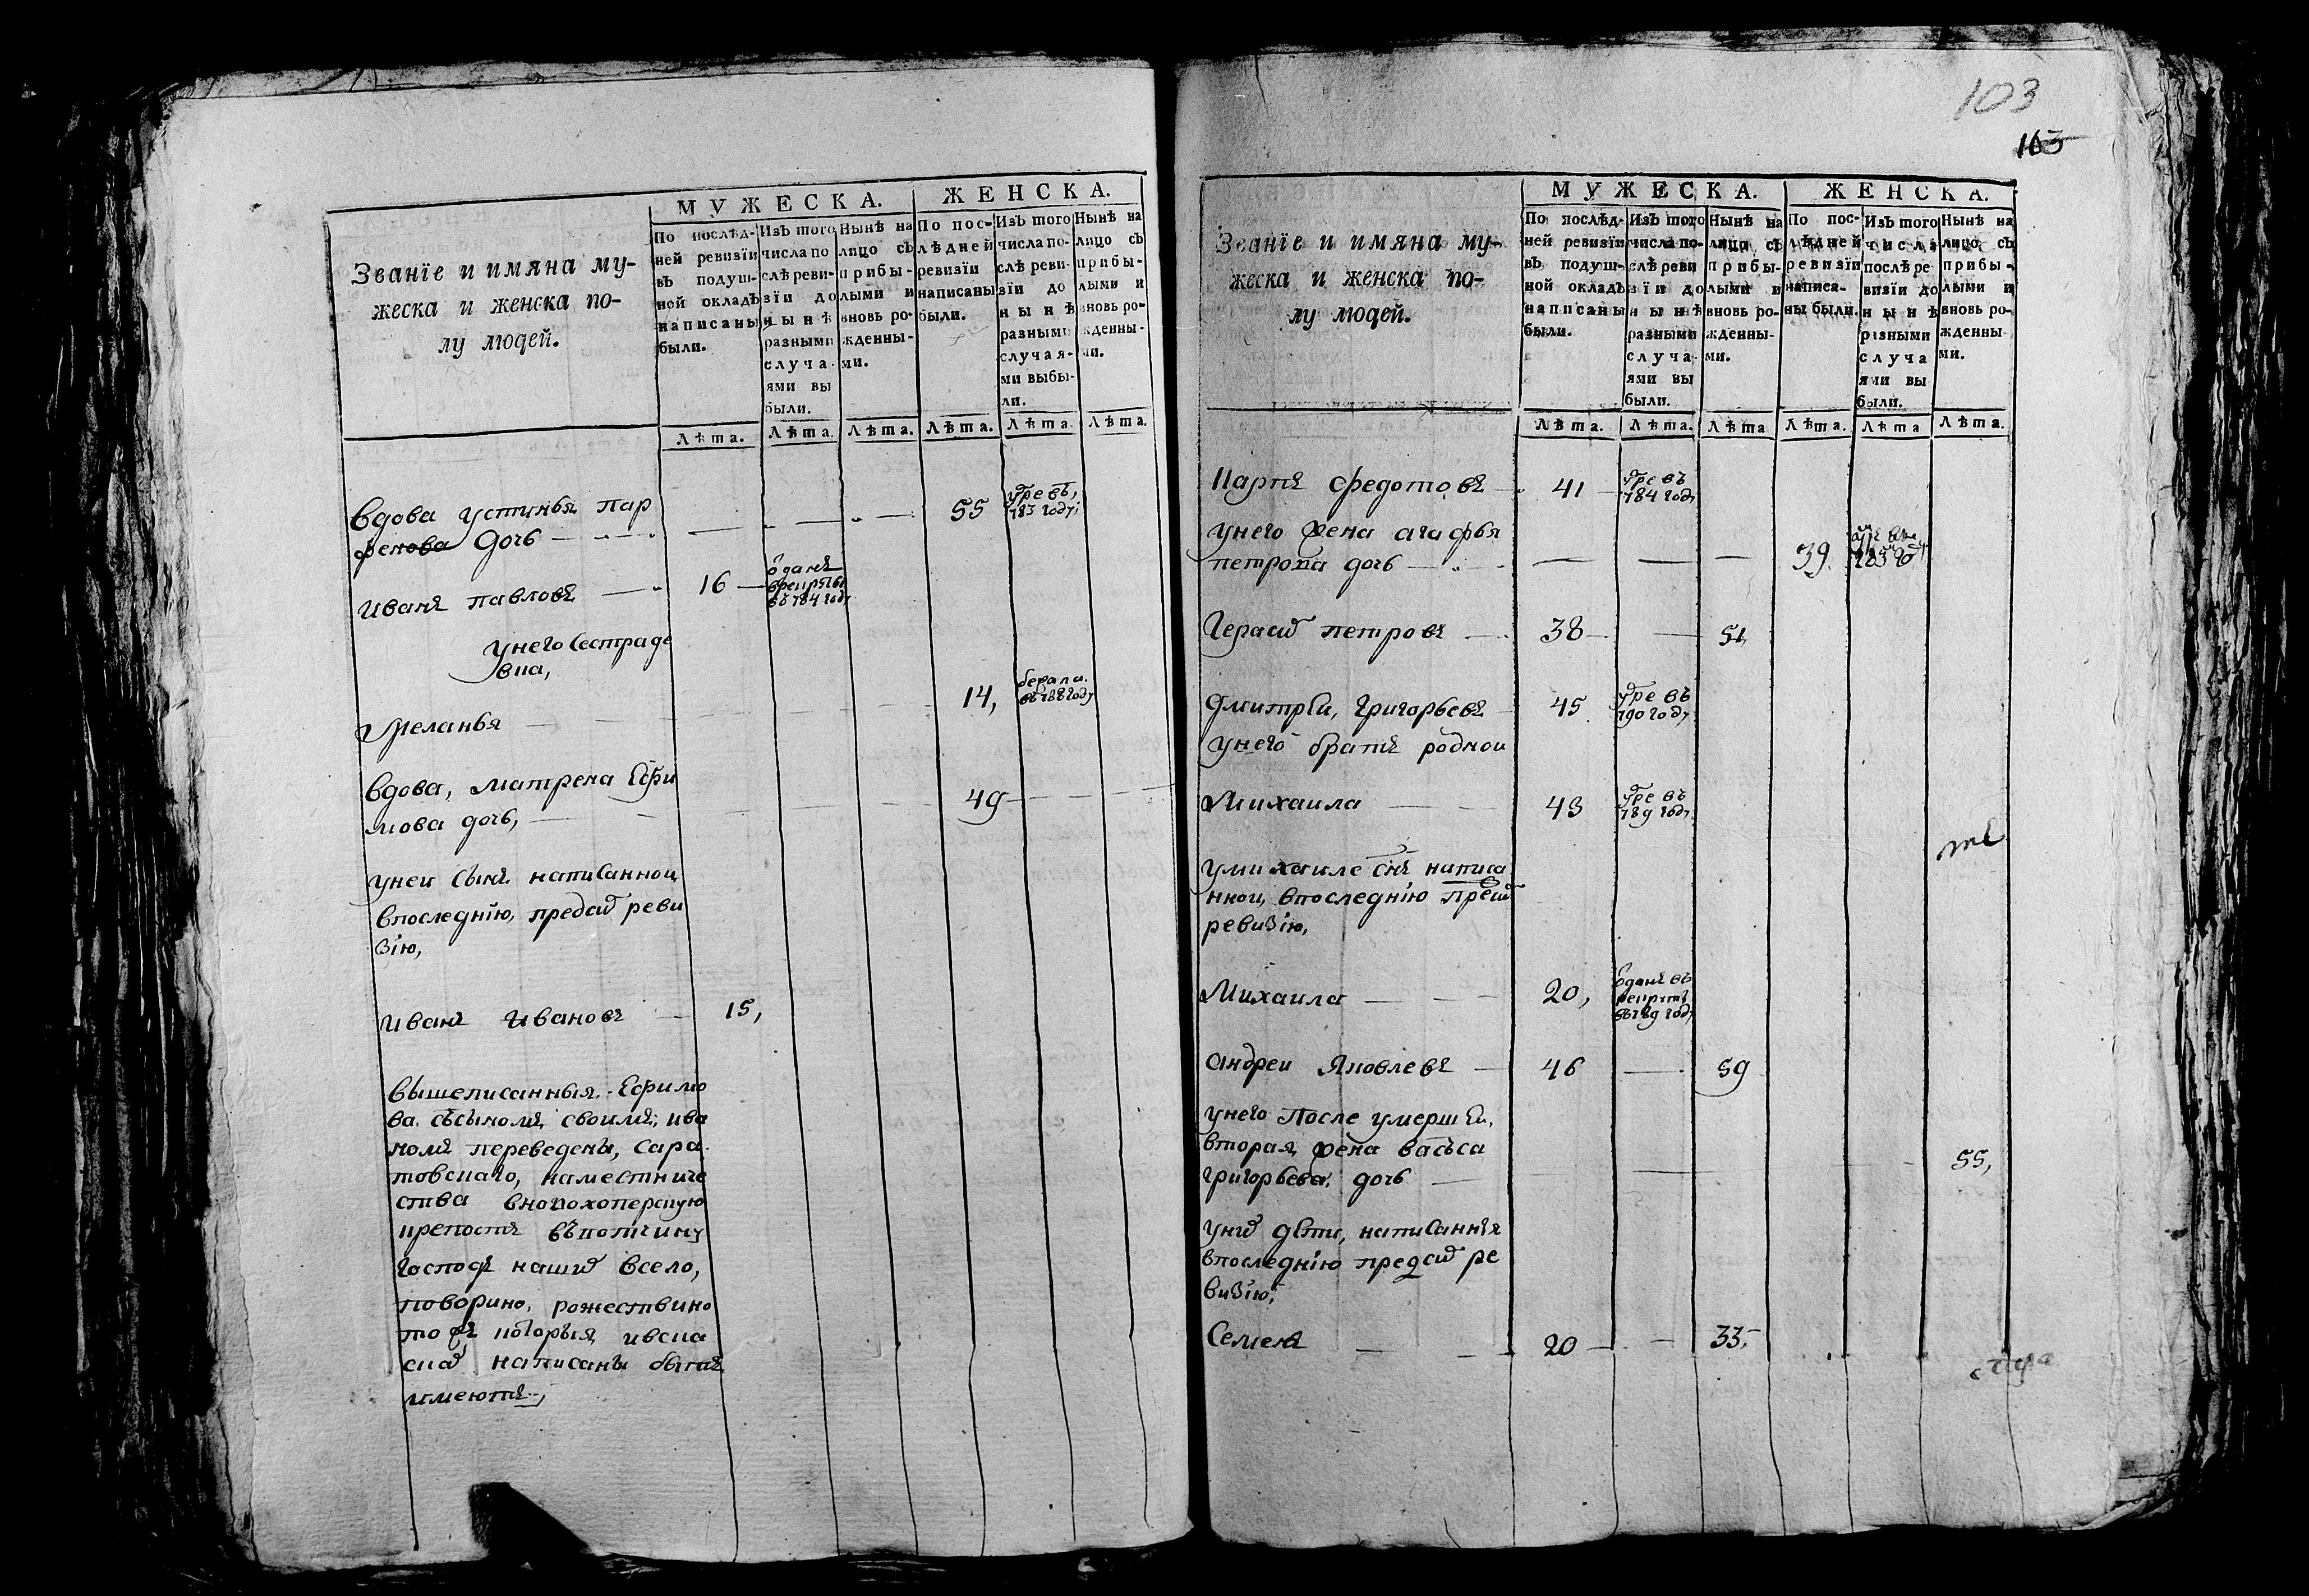 МУЖЕСКА. ЖЕНСКА.
Званїе и имяна му-
жеска и женска по-
лу людей.
По послѣд-
ней ревизїи
въ подуш-
ной окладъ
написаны
были.
Изъ того
числа по
слѣ реви-
зїи до
нынѣ
разными
случа-
ями вы
были.
Нынѣ на
лицо съ
прибы-
лыми и
вновь ро-
жденны-
ми.
По пос-
лѣдней
ревизїи
написаны
были.
Изъ того
числа по-
слѣ реви-
зїи до
нынѣ
разными
случая-
ми выбы-
ли.
Нынѣ на
лицо съ
прибы-
лыми и
вновь ро-
жденны-
ми.
Лѣта. Лѣта. Лѣта. Лѣта. Лѣта. Лѣта.
вдова устинья пар
фенова дочь 55 умре въ 783 году
иванъ павловъ 16 отданъ в рекруты в 784 году
унего сестра де
вка,
Меланья 14, бежала въ 788 году
вдова, матрена Ефи
мова дочь, 49
унеи сынъ написаннои
впоследнїю, пред сим реви
зїю,
иванъ ивановъ 15,
вышеписанныя Ефимо
ва съсыномъ своимъ, ива
номъ переведены, сара
товскаго, наместниче
ства вновохоперскую
крепость въвотчину
господъ наших всело,
поворино, рожествино
тожъ которыя ивска
ске написаны быть
имеютъ,
103
103
МУЖЕСКА. ЖЕНСКА.
Званїе и имяна му-
жеска и женска по-
лу людей.
По послѣд-
ней ревизїи
въ подуш-
ной окладъ
написаны
были.
Изъ того
числа по-
слѣ реви
зїи до
нынѣ
разными
случа-
ями вы
были.
Нынѣ на
лицо съ
прибы-
лыми и
вновь ро-
жденны-
ми.
По пос-
лѣдней
ревизїи
написа-
ны были.
Изъ того
числа
послѣ ре
визїи до
нынѣ
разными
случа
ями вы
были.
Нынѣ на
лицо съ
прибы-
лыми и
вновь ро-
жденны-
ми.
Лѣта. Лѣта. Лѣта Лѣта. Лѣта Лѣта.
Карпъ федотовъ 41 умре въ 784 году
унего жена агафья
петрова дочь 39.
Герасим петровъ 38 51
дмитрей, григорьевъ 45 умре въ 790 году
унего братъ роднои
Михаила 43 умре въ 789 году
умихаиле снъ написа
ннои, впоследнїю пред сим
ревизїю,
Михаила 20, отданъ въ рекруты въ 789 году
андреи Яковлевъ 46 59
унего после умершеи,
вторая жена васъса
григорьева дочь 55,
уних дети, написанныя
впоследнїю пред сим ре
визїю,
Семенъ 20 33